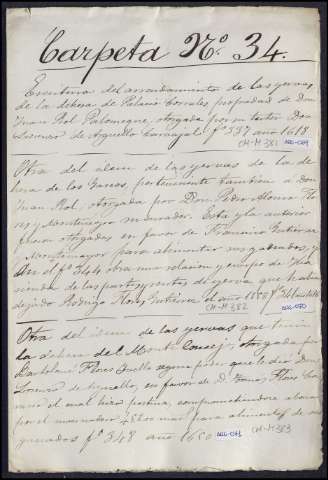 Carpeta Nº 34.
Escritura del arrendamiento de las yervas
de la dehesa de Palacio Corrales propiedad de Don
Juan Rol Palomeque, otorgada por su tutor Don
Lorenzo de Arguello Carvajal fº 337 año 1618.
CM-M 381
Otra del idem de las yervas de la de
hesa de los Ganos, perteneciente tambien á don
Juan Rol, otorgada por Don Pedro Alonso Flo
res y Montenegro menor. Esta y la anterior
fueron otorgadas en favor de Francisco Gutierrez
Montemayor para alimentar sus ganados, y
En el fº 344 obra una relacion y
de las partes y rentas de yerva que habia
dejado Rodrigo Flores Gutierrez el año
CM-M 382
Otra del idem de las yervas que tenia
la dehesa del Monte Concejo, otorgada por
Bartolomé Flores Quello segun poder que le dio Don
Lorenzo de Arguello, en favor de D. Tomas Flores
el cual hizo postura, comprometiendose abonar
por el para alimento de sus
ganados fº 348 año 1620
CM-M 383